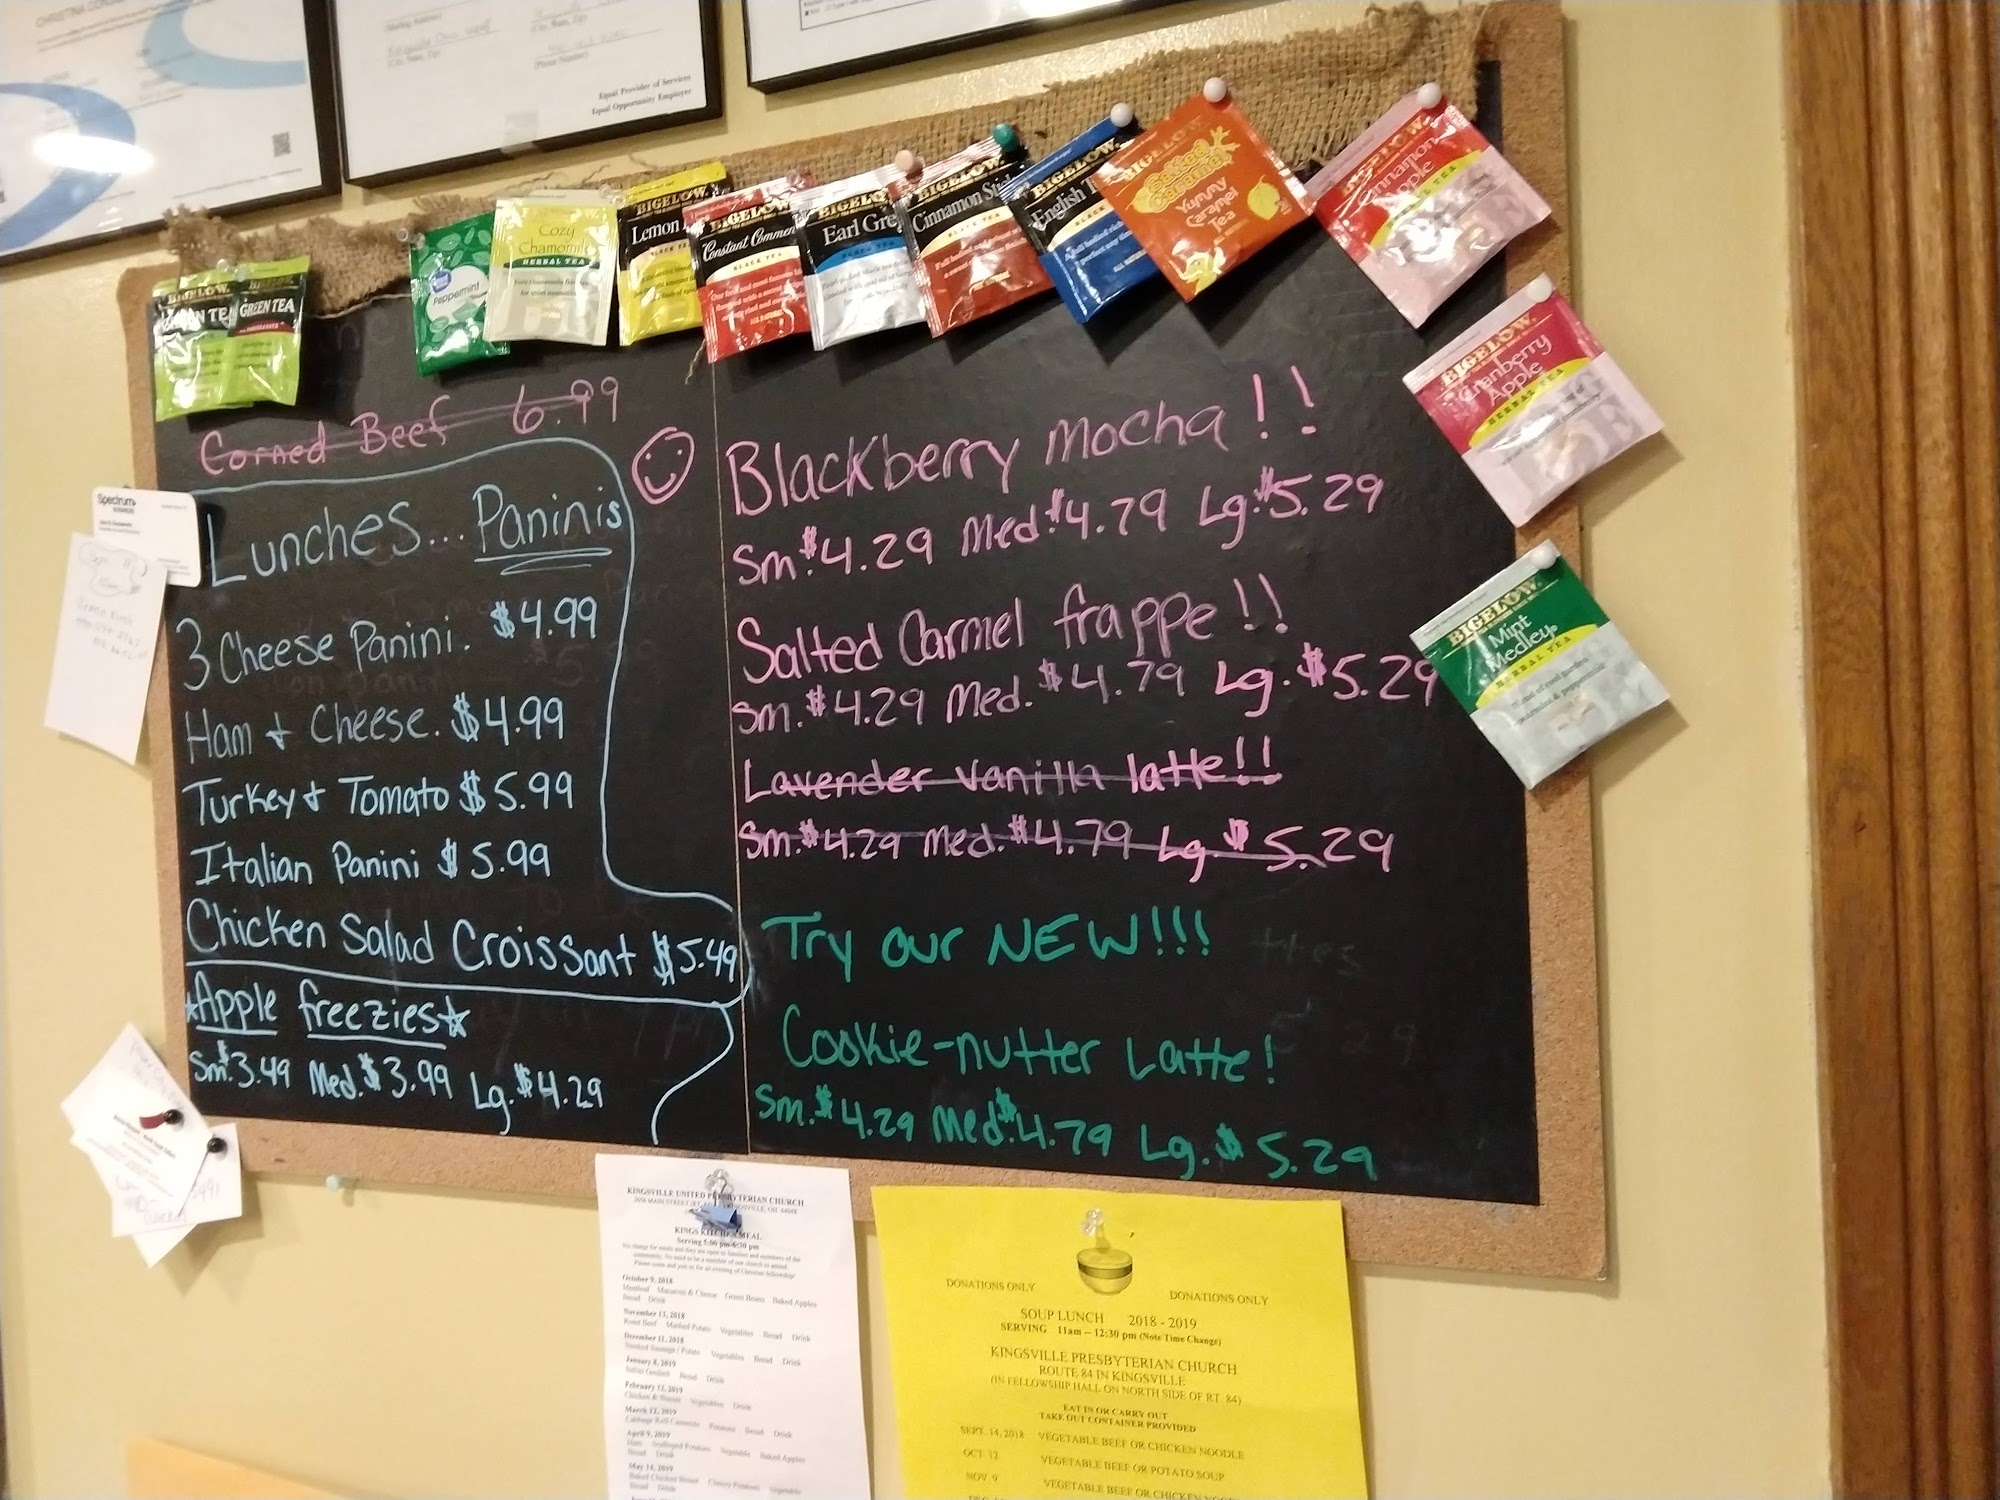 Equal Provider of Services
Equal Opportunity Employer
BIGELOW
GREEN TEA
BIGELOW
GREEN TEA
Peppermint
Cozy
Chamomile
HERBAL TEA
BIGELOW
Lemon
BLACK TEA
BIGELOW
Constant Commen
BLACK TEA
ALL NATURAL
Earl Grey
BLACK TEA
BIGELOW
Cinnamon Stick
BLACK TEA
BIGELOW
English T
BLACK
BIGELOW
Salted
Caramel
Yummy
Caramel
Tea
BIGELOW
Cinnamon
Apple
HERBAL TEA
BIGELOW
Cranberry
Apple
HERBAL TEA
BIGELOW
Mint
Medley
HERBAL TEA
Corned Beef 6.99
Lunches... Paninis
3 Cheese Panini. $4.99
Ham + Cheese. $4.99
Turkey + Tomato $5.99
Italian Panini $5.99
Chicken Salad Croissant $5.49
Apple freezies
Sm.$3.49 Med.$3.99 Lg.$4.29
Blackberry mocha!!
Sm.$4.29 Med.$4.79 Lg.$5.29
Salted Carmel frappe!!
Sm.$4.29 Med.$4.79 Lg.$5.29
Lavender vanilla latte!!
Sm.$4.29 Med.$4.79 Lg.$5.29
Try our NEW!!!
Cookie-nutter Latte!
Sm.$4.29 Med.$4.79 Lg.$5.29
Spectrum
BUSINESS
KINGSVILLE UNITED PRESBYTERIAN CHURCH
KINGS KITCHEN MEAL
Serving 5:00 pm-6:30 pm
October 9, 2018
Meatloaf Macaroni & Cheese Green Beans Baked Apples
Bread Drink
November 13, 2018
Roast Beef Mashed Potato Vegetables Bread Drink
December 11, 2018
Smoked Sausage / Potato Vegetables Bread Drink
January 8, 2019
Italian Goulash Bread Drink
February 12, 2019
Chicken & Biscuit Vegetables Drink
March 12, 2019
Cabbage Roll Casserole Potatoes Bread Drink
April 9, 2019
Ham Scalloped Potatoes Vegetable Baked Apples
Bread Drink
May 14, 2019
Baked Chicken Breast Cheesy Potatoes Vegetable
Bread Drink
DONATIONS ONLY DONATIONS ONLY
SOUP LUNCH 2018 - 2019
SERVING 11am – 12:30 pm (Note Time Change)
KINGSVILLE PRESBYTERIAN CHURCH
ROUTE 84 IN KINGSVILLE
(IN FELLOWSHIP HALL ON NORTH SIDE OF RT. 84)
EAT IN OR CARRY OUT
TAKE OUT CONTAINER PROVIDED
SEPT. 14, 2018 VEGETABLE BEEF OR CHICKEN NOODLE
OCT. 12 VEGETABLE BEEF OR POTATO SOUP
NOV. 9 VEGETABLE BEEF OR CHICKEN